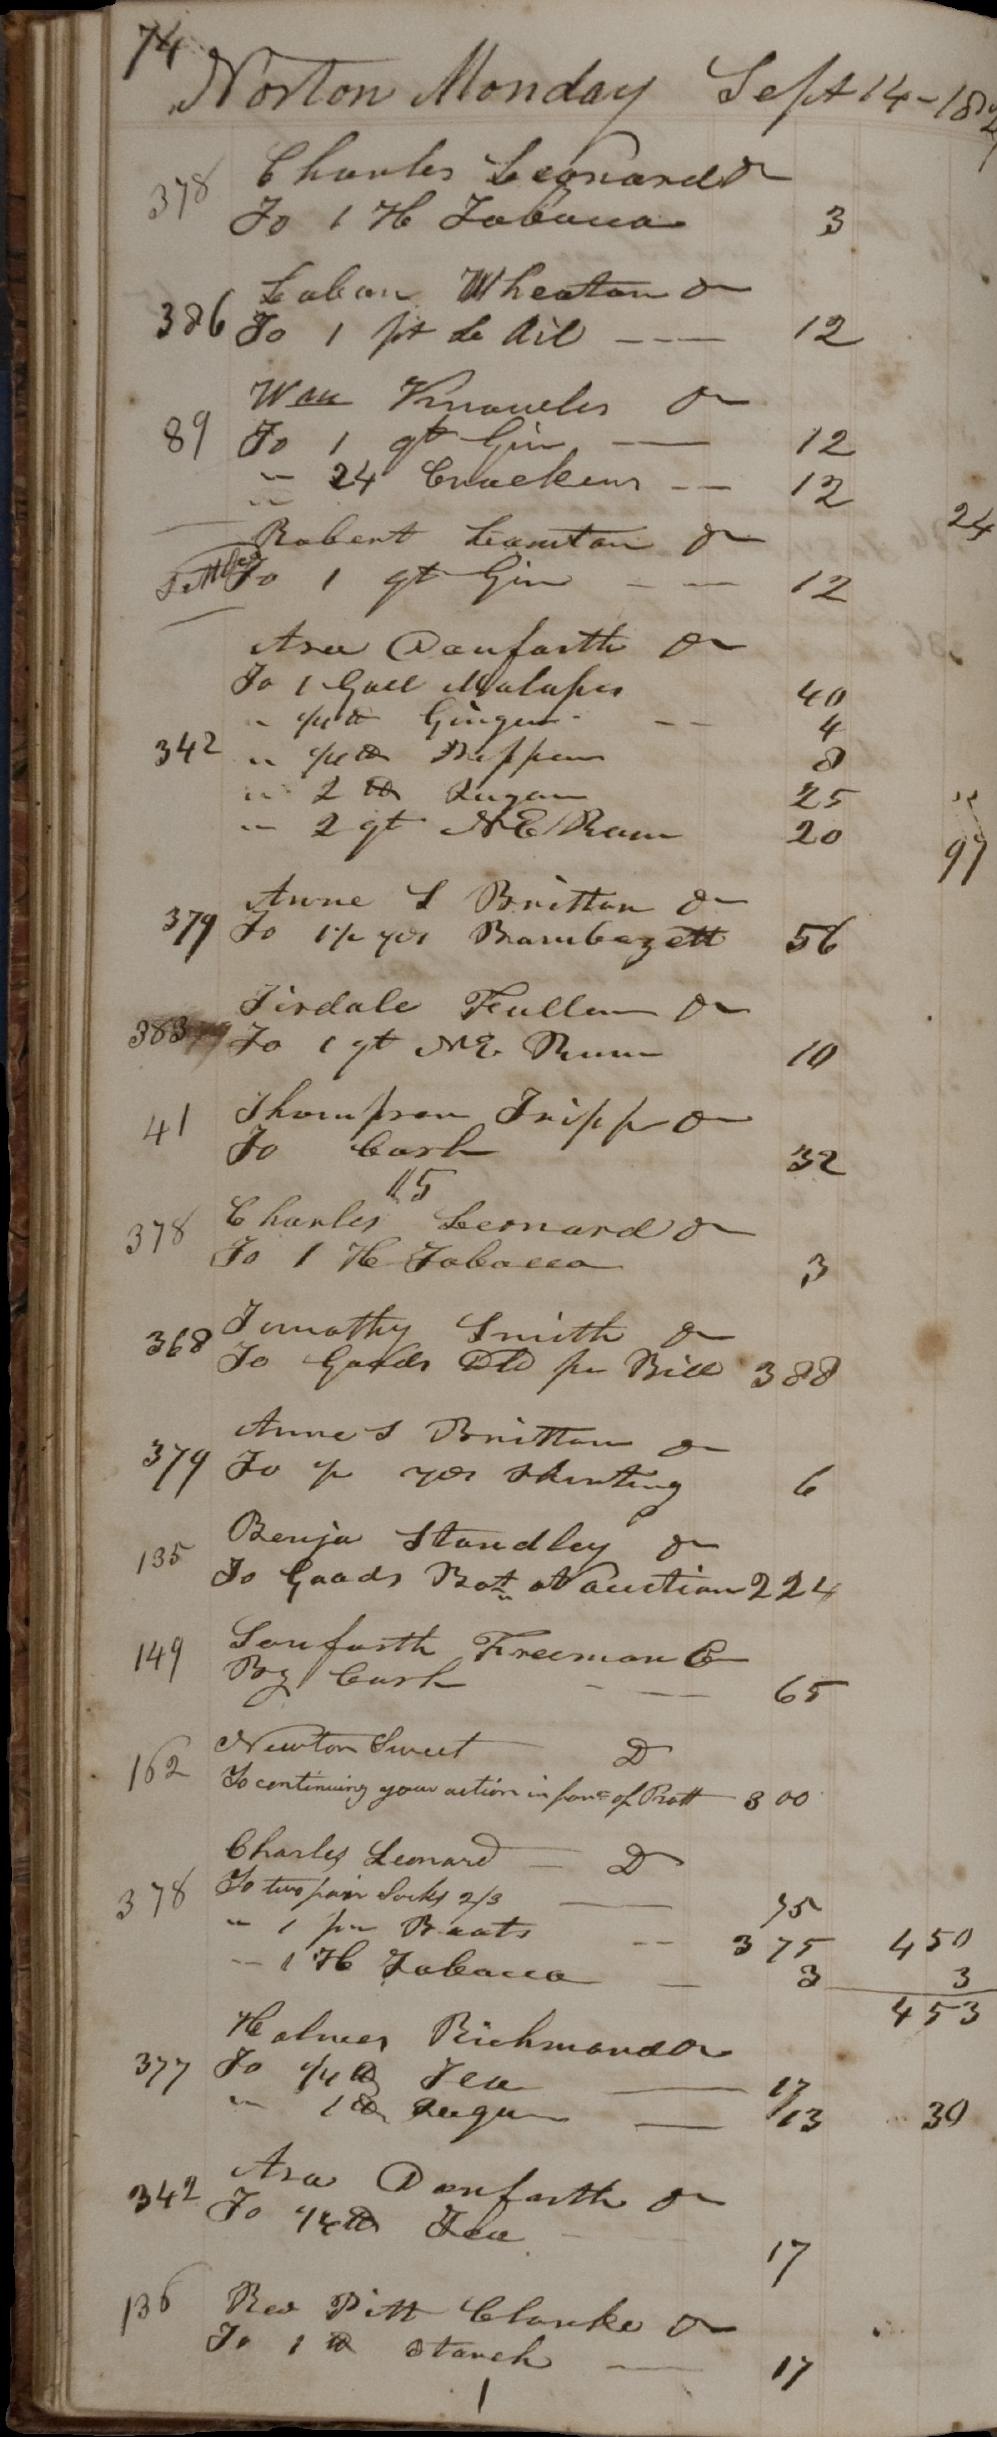 74
Norton Monday Sept 14 - 182
378 Charles Leonard Dr
To 1 H Tobacco 3
386 Laban Wheaton Dr
To 1 pt Lp Oil 12
89 Wm Knowles Dr
To 1 qt Gin 12
" 24 Crackers 12 24
Robert Dr
Settled To 1 qt Gin 12
Asa Danforth Dr
To 1 Gall Molasses 40
" 1/4 lb Ginger 4
342 " 1/4 lb Pepper 8
" 2 lb Sugar 25
" 2 qt NE Rum 20 97
Anne S Britton Dr
379 To 1 1/2 yds Bambazett 56
Tisdale Fuller Dr
383 To 1 qt NE Rum 10
41 Thompson Tripp Dr
To Cash 32
15
378 Charles Leonard Dr
To 1 H Tobacco 3
368 Timothy Smith Dr
To Goods Dld per Bill 388
Anne S Britton Dr
379 To 1/2 yds Shirting 6
135 Benja Standley Dr
To Goods Bot at auction 224
149 Danforth Freeman Cr
By Cash 65
162 Newton Sweet D
To continuing your action in favr of Pratt 3 00
Charles Leonard D
378 To two pair Socks 2/3 75
" 1 pr Boots 3 75 450
" 1 H Tobacco 3 3
453
Holmes Richmond Dr
377 To 1/4 lb Tea 17
" 1 lb Sugar 13 30
342 Asa Danforth Dr
To 1/4 lb Tea 17
136 Rev Pitt Clarke Dr
To 1 lb Starch 17
1